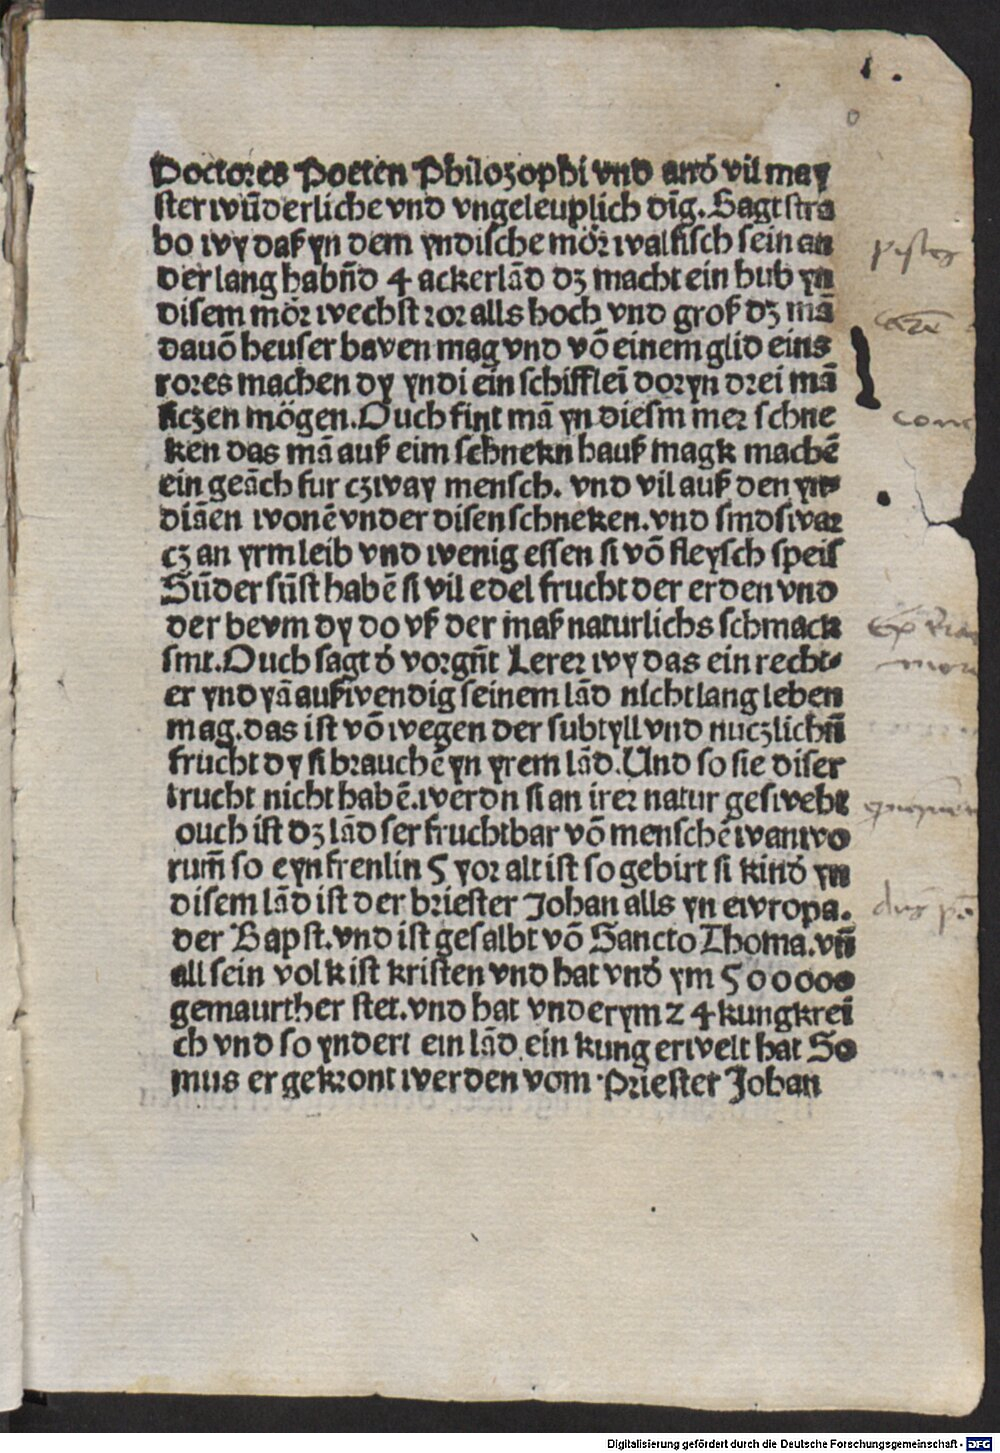 1.
Doctores Poeten Philozophi vnd andḋ vil may
ster wūderliche vnd vngeleuplich dīg. Sagt stra
bo wy daß yn dem yndische mör walfisch sein an
der lang habn̄d 4 ackerlād dz macht ein hub yn
disem mör wechst ror alls hoch vnd groß dz mā
dauō heuser baven mag vnd vō einem glid eins
rores machen dy yndi ein schifflei doryn drei mā
siczen mögen. Ouch fint mā yn diesm mer schne
ken das mā auß eim schnekn hauß magk machē
ein geāch fur czway mensch. vnd vil auß den yn-
diāen wonē vnder disen schneken. vnd smd swar
cz an yrm leib vnd wenig essen si vō fleysch speis
Sūder sūst habē si vil edel frucht der erden vnd
der bevm dy do vß der maß naturlichs schmack
smt. Ouch sagt ḋ vorgn̄t Lerer wy das ein recht-
er ynd yā außwendig seinem lād nicht lang leben
mag. das ist vō wegen der subtyll vnd nuczlichn̄
frucht dy si brauchē yn yrem lād. Und so sie diser
trucht nicht habē. werdn si an irer natur gesweht
ouch ist dz lād ser fruchtbar vō menschē wanwo
rum̄ so eyn frenlin 5 yor alt ist so gebirt si kindḋ yn
disem lād ist der briester Johan alls yn ewropa.
der Bapst. vnd ist gesalbt vō Sancto Thoma. vn̄
all sein volk ist kristen vnd hat vndḋ ym 50000
gemaurther stet. vnd hat vnder ym 24 kungkrei
ch vnd so yndert ein lād ein kung erwelt hat So
mus er gekront werden vom Priester Johan
Digitalisierung gefördert durch die Deutsche Forschungsgemeinschaft - DFG